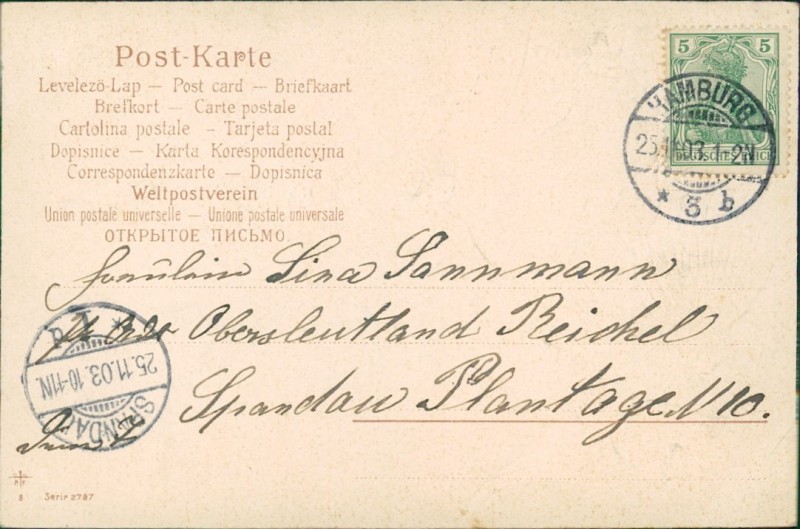 Post-Karte
Levelező-Lap — Post card — Briefkaart
Brefkort — Carte postale
Cartolina postale — Tarjeta postal
Dopisnice — Karta Korespondencyjna
Correspondenzkarte — Dopisnica
Weltpostverein
Union postale universelle — Unione postale universale
ОТКРЫТОЕ ПИСЬМО.
5 5
DEUTSCHES REICH
HAMBURG
25.11.03.1-2N
* 3 b
Fräulein Lina Sannmann
Obersleutland Reichel
Spandau Plantage N 10.
SPANDAU
25.11.03.10-11N.
8 Serie 2787